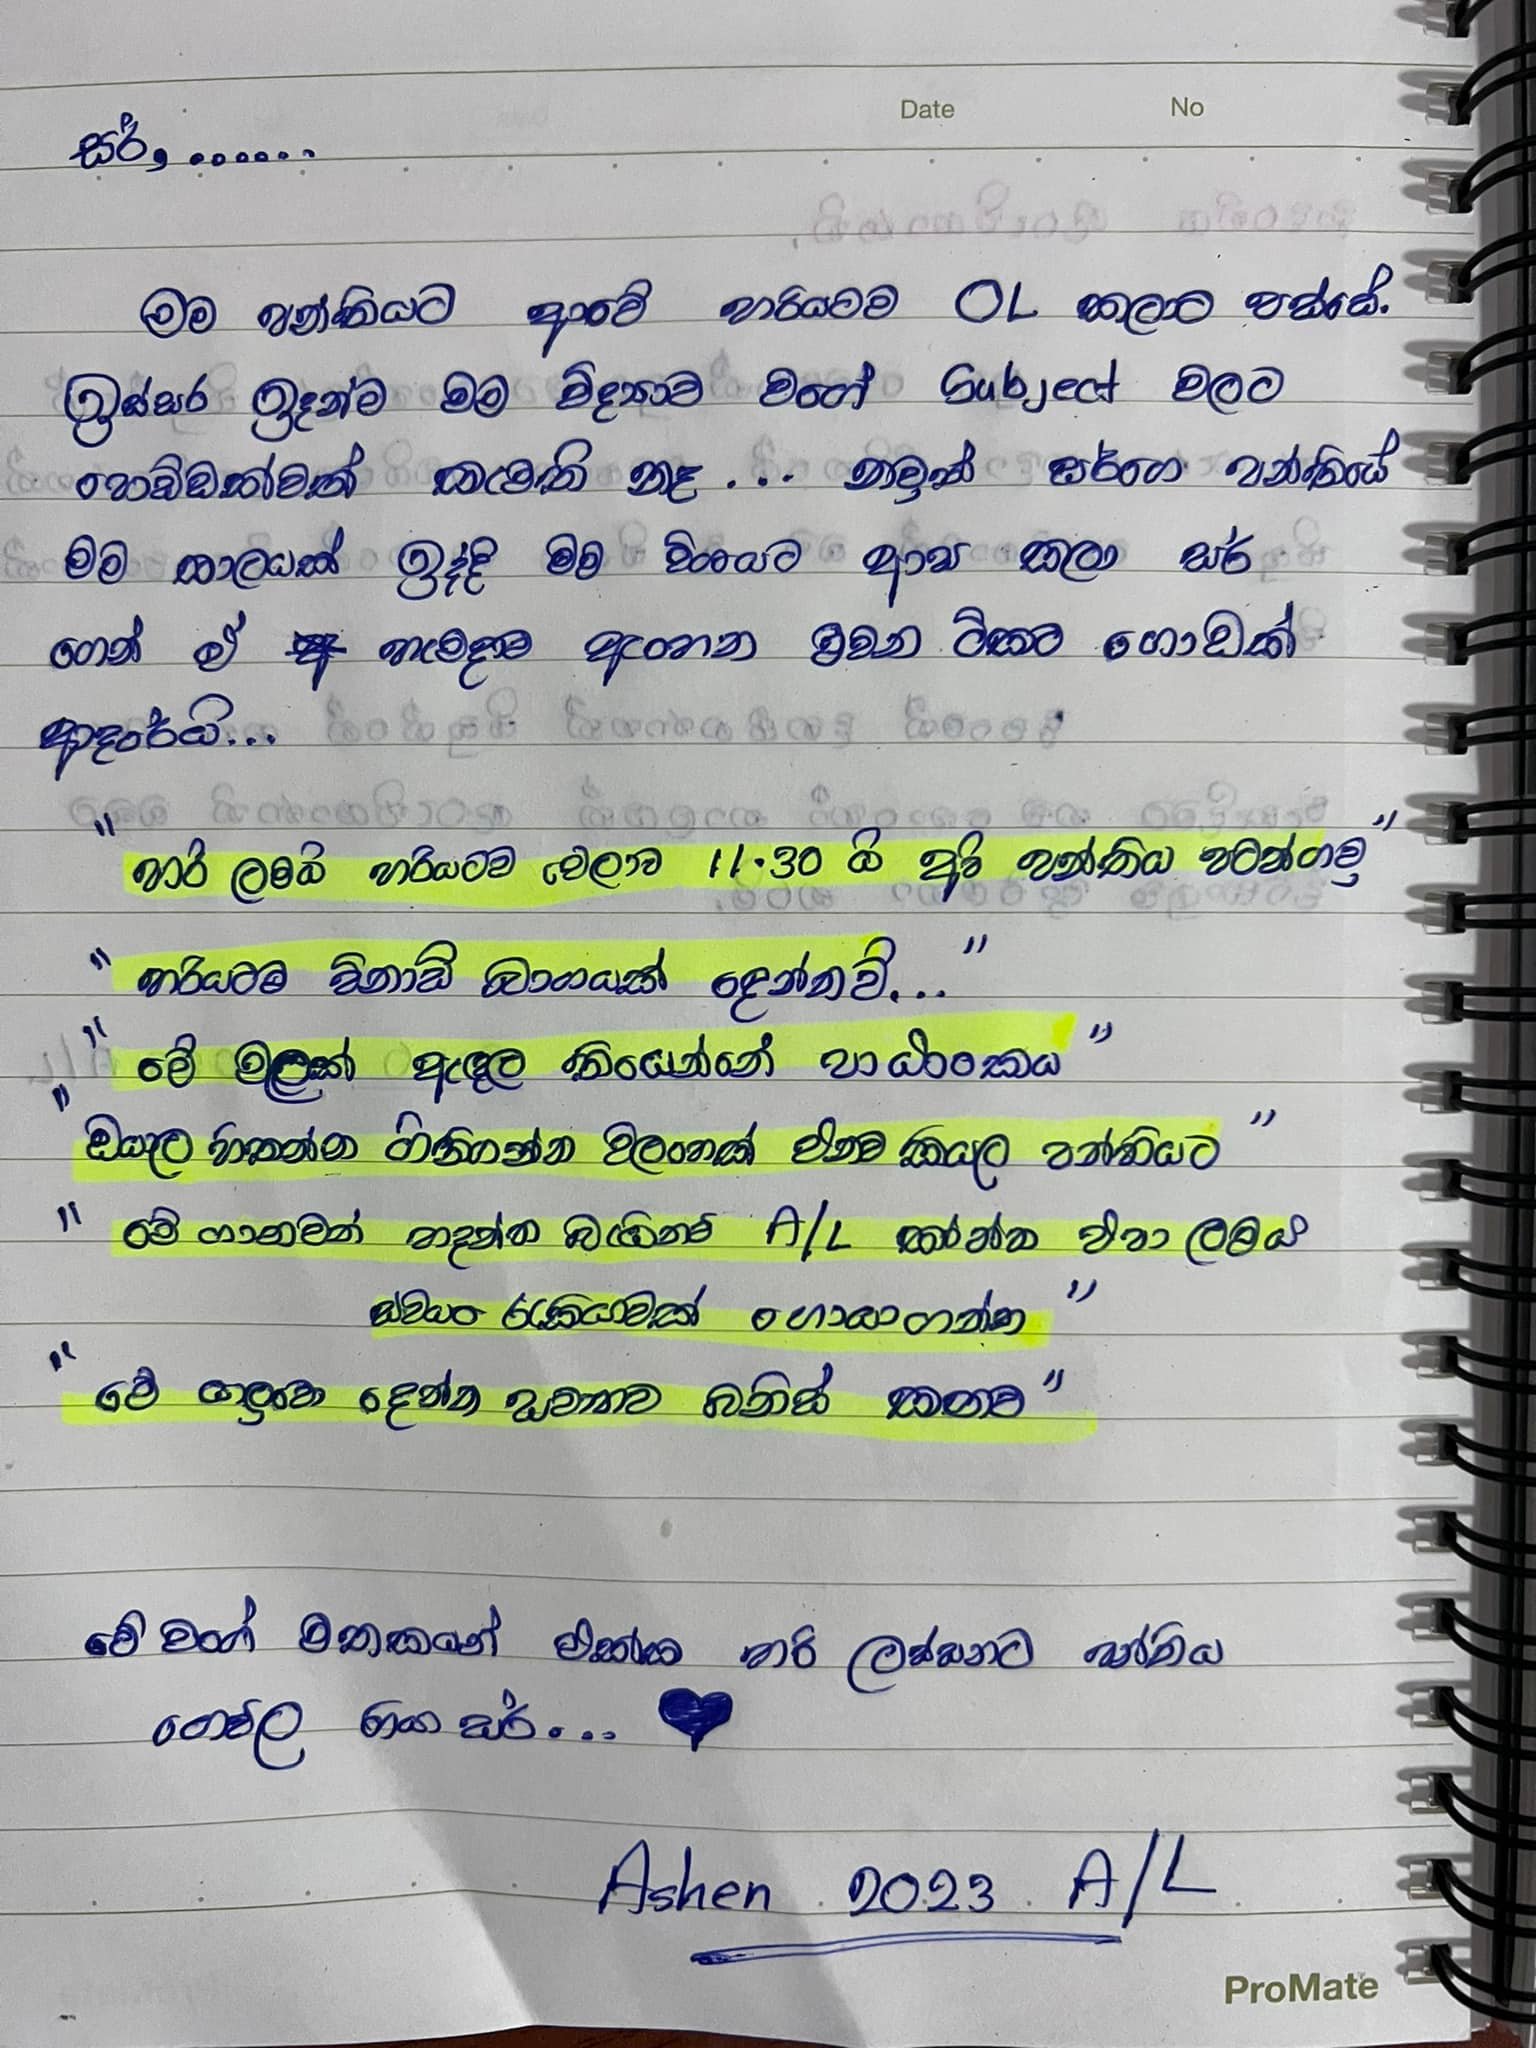 Date No
සර්, ......
මම පන්තියට ආවේ හරියටම OL කලාට පස්සේ.
ඉස්සර ඉදන්ම මම විද්‍යාව වගේ Subject වලට
පොඩ්ඩක්වත් කැමති නෑ ... නමුත් සර්ගෙ පන්තියේ
මම කාලයක් ඉද්දි මම විශයට ආස කලා සර්
ගෙන් ඒ හැමදාම ඇහෙන වචන ටිකට ගොඩක්
ආදරෙයි...
" හරි ලමයි හරියටම වෙලාව 11.30 යි අපි පන්තිය පටන්ගමු "
" හරියටම විනාඩි බාගයක් දෙන්නම්... "
" මේ මලක් ඇඳල තියෙන්නේ පාඨාංකය "
" ඔයාල හිතන්න ගිනිගන්න විලාහක් එනව කියල පන්තියට "
" මේ පානවත් හදන්න බැරිනම් A/L කරන්න එපා ලමයි
ස්වයං රැකියාවක් හොයාගන්න "
" මේ යාලුවෙ දෙන්න හවසට බනිස් කනව "
මේ වගේ මතකයන් එක්ක හරි ලස්සනට පන්තිය
ගෙවිල ගියා සර්... ♥
Ashen 2023 A/L
ProMate